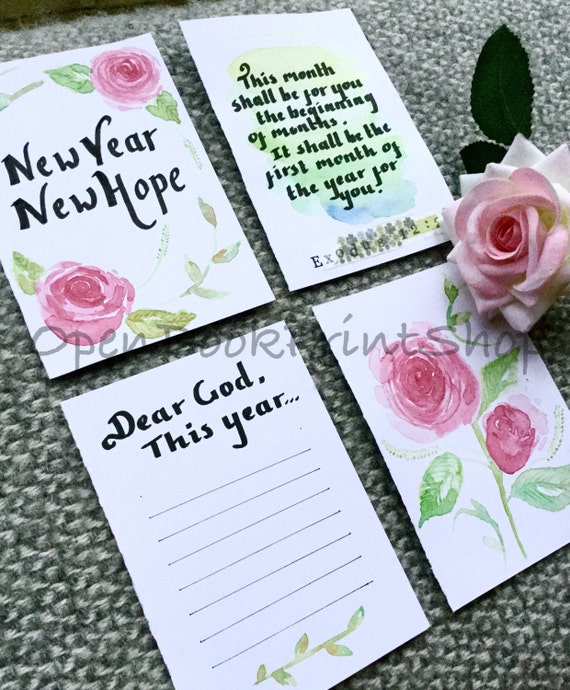 New Year
New Hope
This month
shall be for you
the beginning
of months.
It shall be the
first month of
the year for
you!
Exodus 12:2
OpenBookPrintShop
Dear God,
This year...